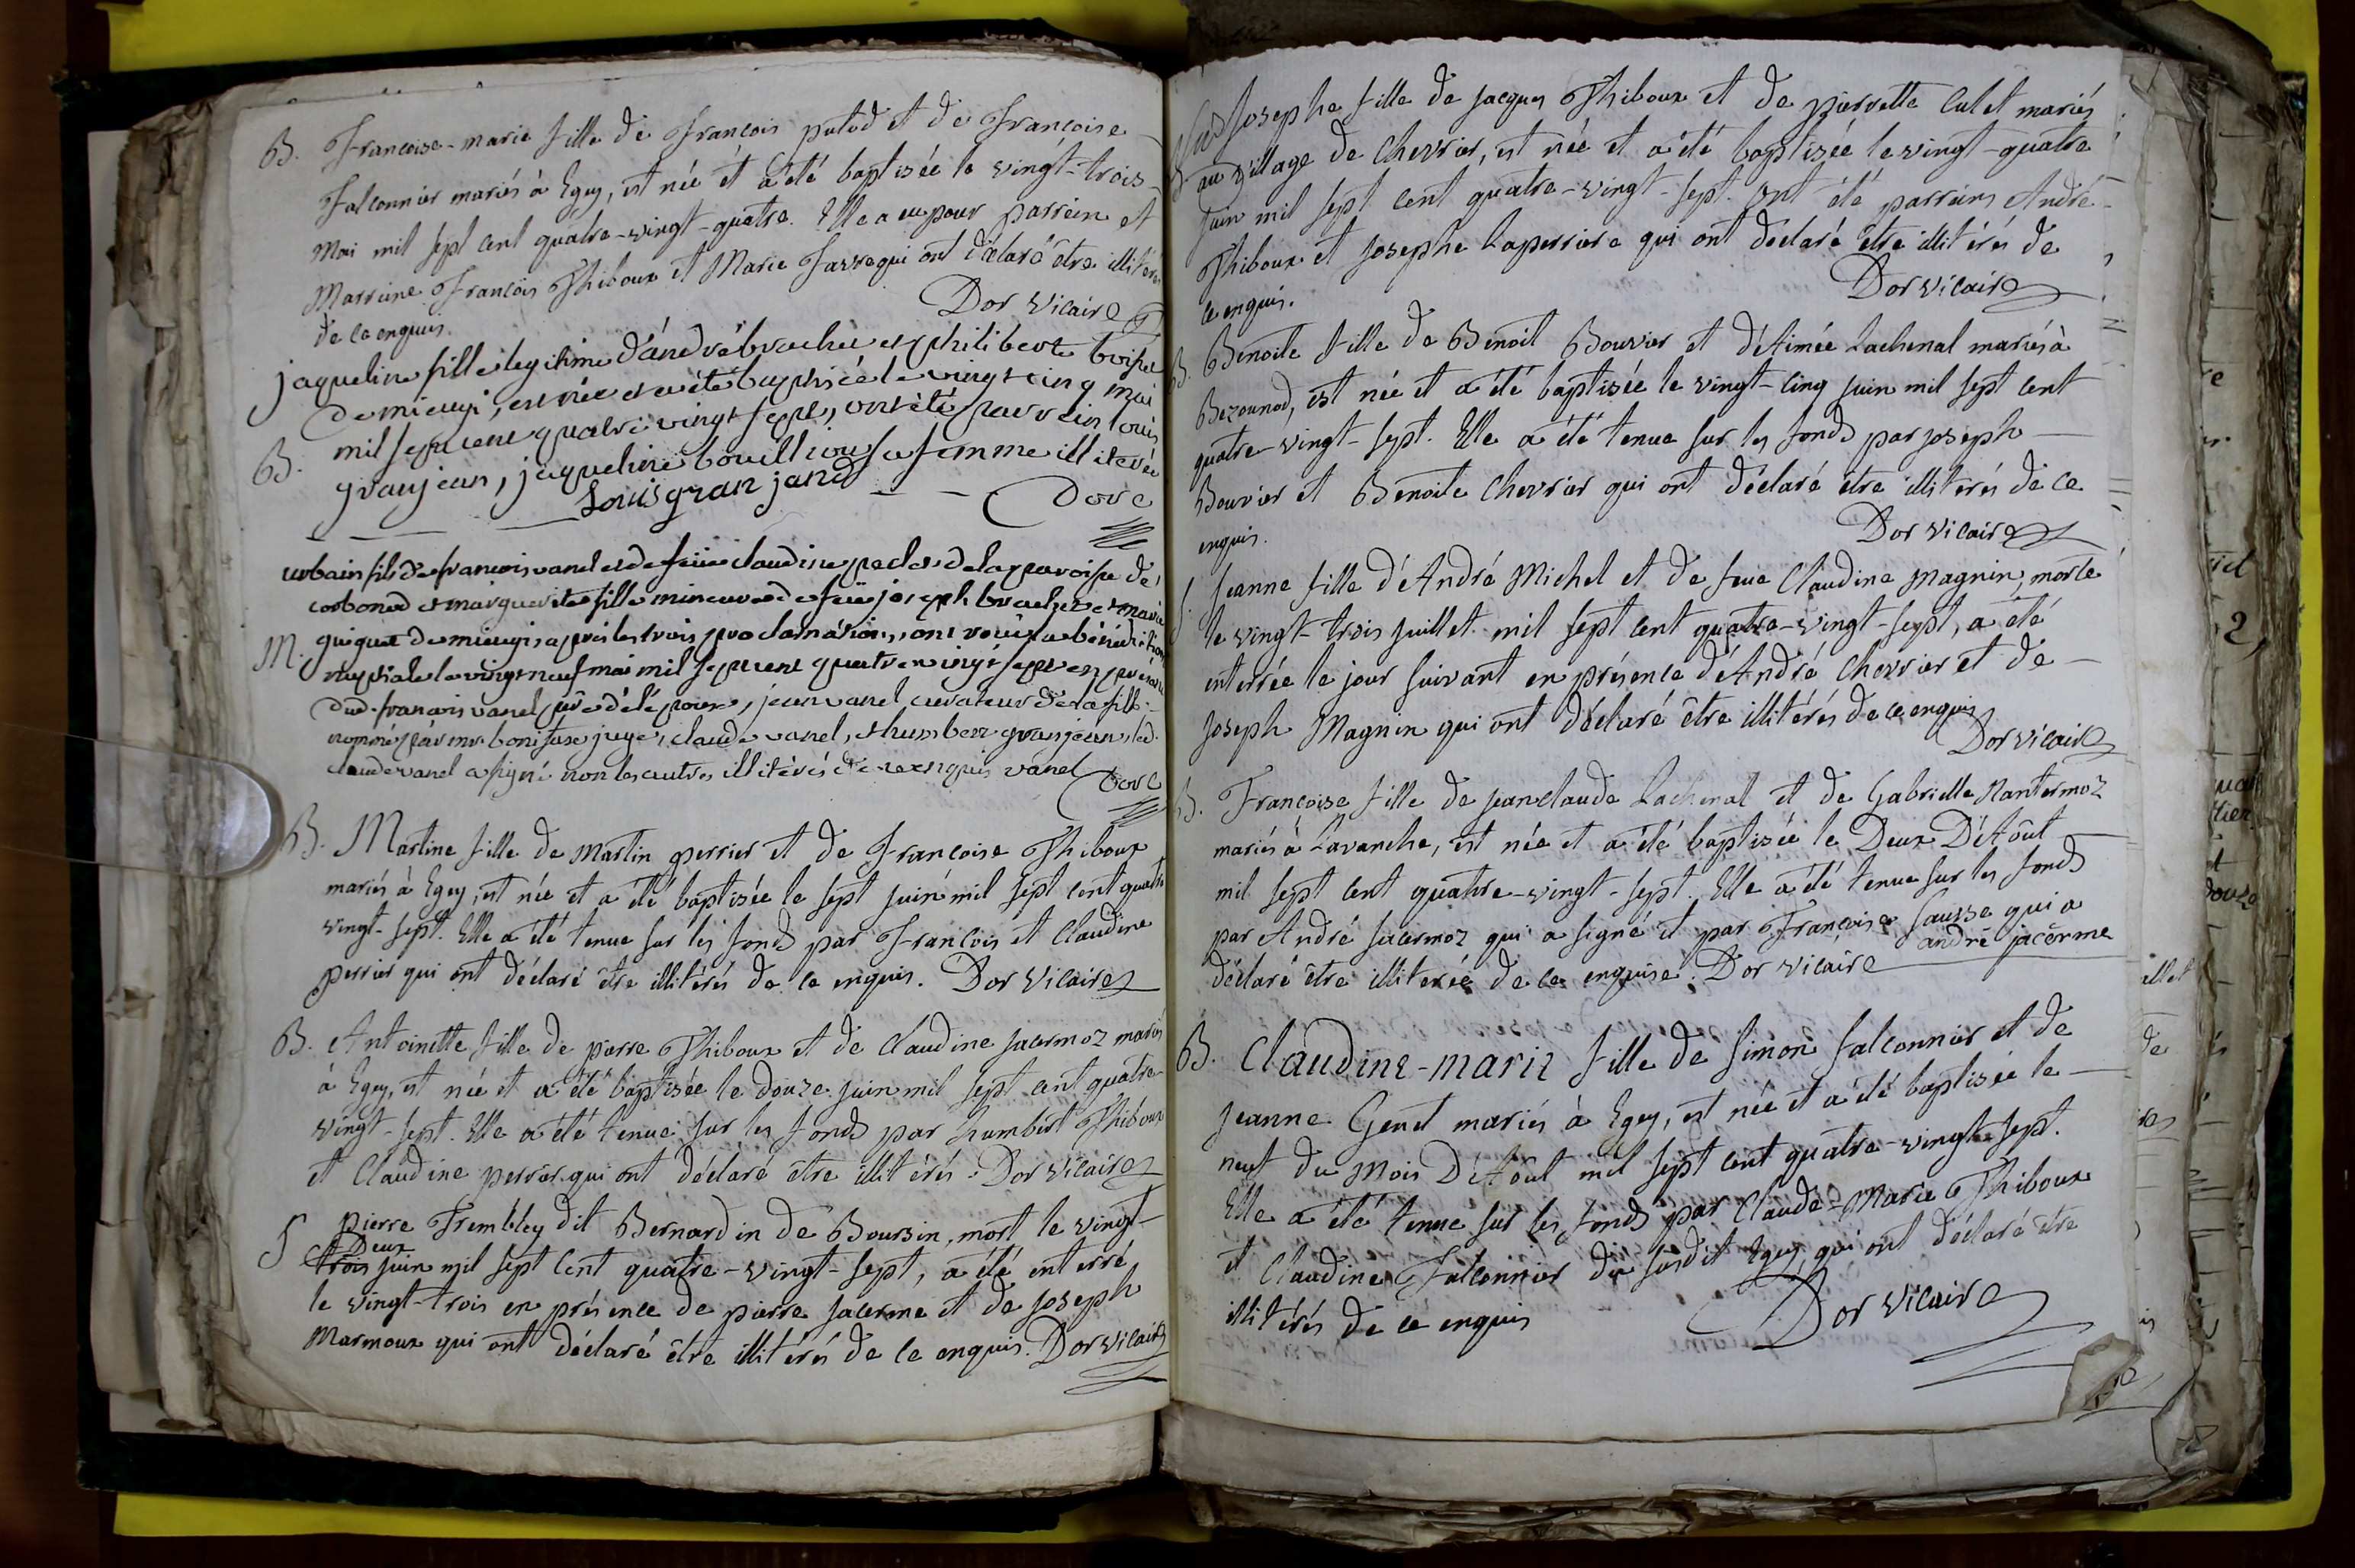 B. Francoise-marie fille de francois putod et de francoise
Falconnier mariés à Egey, est née et a été baptisée le vingt-trois
Mai mil sept cent quatre-vingt-quatre. Elle a eu pour parrein et
Marreine François Thiboux et Marie qui ont déclaré être illitérés
de ce enquis. Dor Vicaire
jaqueline fille legitime d'andré brachet et philiberte
de mieugi, est née et a été baptisée le vingt cinq mai
B. mil sept cent quatre vingt sept, ont été parrein louis
granjean, jaqueline bouillioux sa femme illiterée
Louis gran jand Dore
urbain fils de francois vanel et de feüe claudine de la paroise de
corbonod et marguerite fille mineure de feü joseph brachet et marie
M. guiguet de mieugi après les trois proclamations, ont reçu la bénédiction
nuptiale le vingt neuf mai mil sept cent quatre vingt sept en présence
dud. francois vanel père de l'époux, jean vanel, curateur de la fille
nommé par mr. boniface juge, claude vanel, et humbert granjean, led.
claude vanel a signé non les autres illitérés de ce enquis vanel
Dore
B. Martine fille de Martin perrier et de Francoise Thiboux
mariés à Egey, est née et a été baptisée le sept juin mil sept cent quatre
vingt-sept. Elle a été tenue sur les fonds par François et Claudine
perrier qui ont déclaré être illitérés de ce enquis. Dor Vicaire
B. Antoinette fille de pierre Thiboux et de Claudine jacermoz mariés
à Egey, est née et a été baptisée le douze juin mil sept cent quatre-
vingt-sept. Elle a été tenue sur les fonds par humbert Thiboux
et Claudine perrier qui ont déclaré être illitérés. Dor Vicaire
S pierre Trembley dit Bernardin de Boursin, mort le vingt-
Deux
trois juin mil sept cent quatre-vingt-sept, a été enterré
le vingt-trois en présence de pierre jacerme et de joseph
Marmoux qui ont déclaré être illitérés de ce enquis. Dor Vicaire
Josephe fille de jacques Thiboux et de pierrette Culet mariés
au village de Chevrier, est née et a été baptisée le vingt-quatre
juin mil sept cent quatre-vingt-sept. ont été parreins André
Thiboux et josephe Laperriere qui ont déclaré être illitérés de
ce enquis. Dor Vicaire
B. Benoite fille de Benoit Bouvier et d'Aimée Lachenal mariés à
Bezounod, est née et a été baptisée le vingt-cinq juin mil sept cent
quatre-vingt-sept. Elle a été tenue sur les fonds par joseph
Bouvier et Benoite Chevrier qui ont déclaré être illiterés de ce
enquis. Dor Vicaire
S. Jeanne fille d'André Michel et de feue Claudine Magnin, morte
le vingt-trois juillet mil sept cent quatre-vingt-sept, a été
enterrée le jour suivant en présence d'André Chevrier et de
joseph Magnin qui ont déclaré être illitérés de ce enquis
Dor Vicaire
B. Francoise fille de jeanclaude Lachenal et de Gabrielle Nantermoz
mariés à Lavanche, est née et a été baptisée le Deux D'Août
mil sept cent quatre-vingt-sept. Elle a été tenue sur les fonds
par André jacermoz qui a signé et par Françoise Sausse qui a
déclaré être illiterée de ce enquise. Dor Vicaire andré jacerme
B. Claudine-marie fille de Simon falconnier et de
jeanne Genet mariés à Egey, est née et a été baptisée le
neuf du Mois D'Août mil sept cent quatre-vingt-sept.
Elle a été tenue sur les fonds par Claude-Marie Thiboux
et Claudine Falconnier du susdit Egey, qui ont déclaré être
illitérés de ce enquis
Dor Vicaire